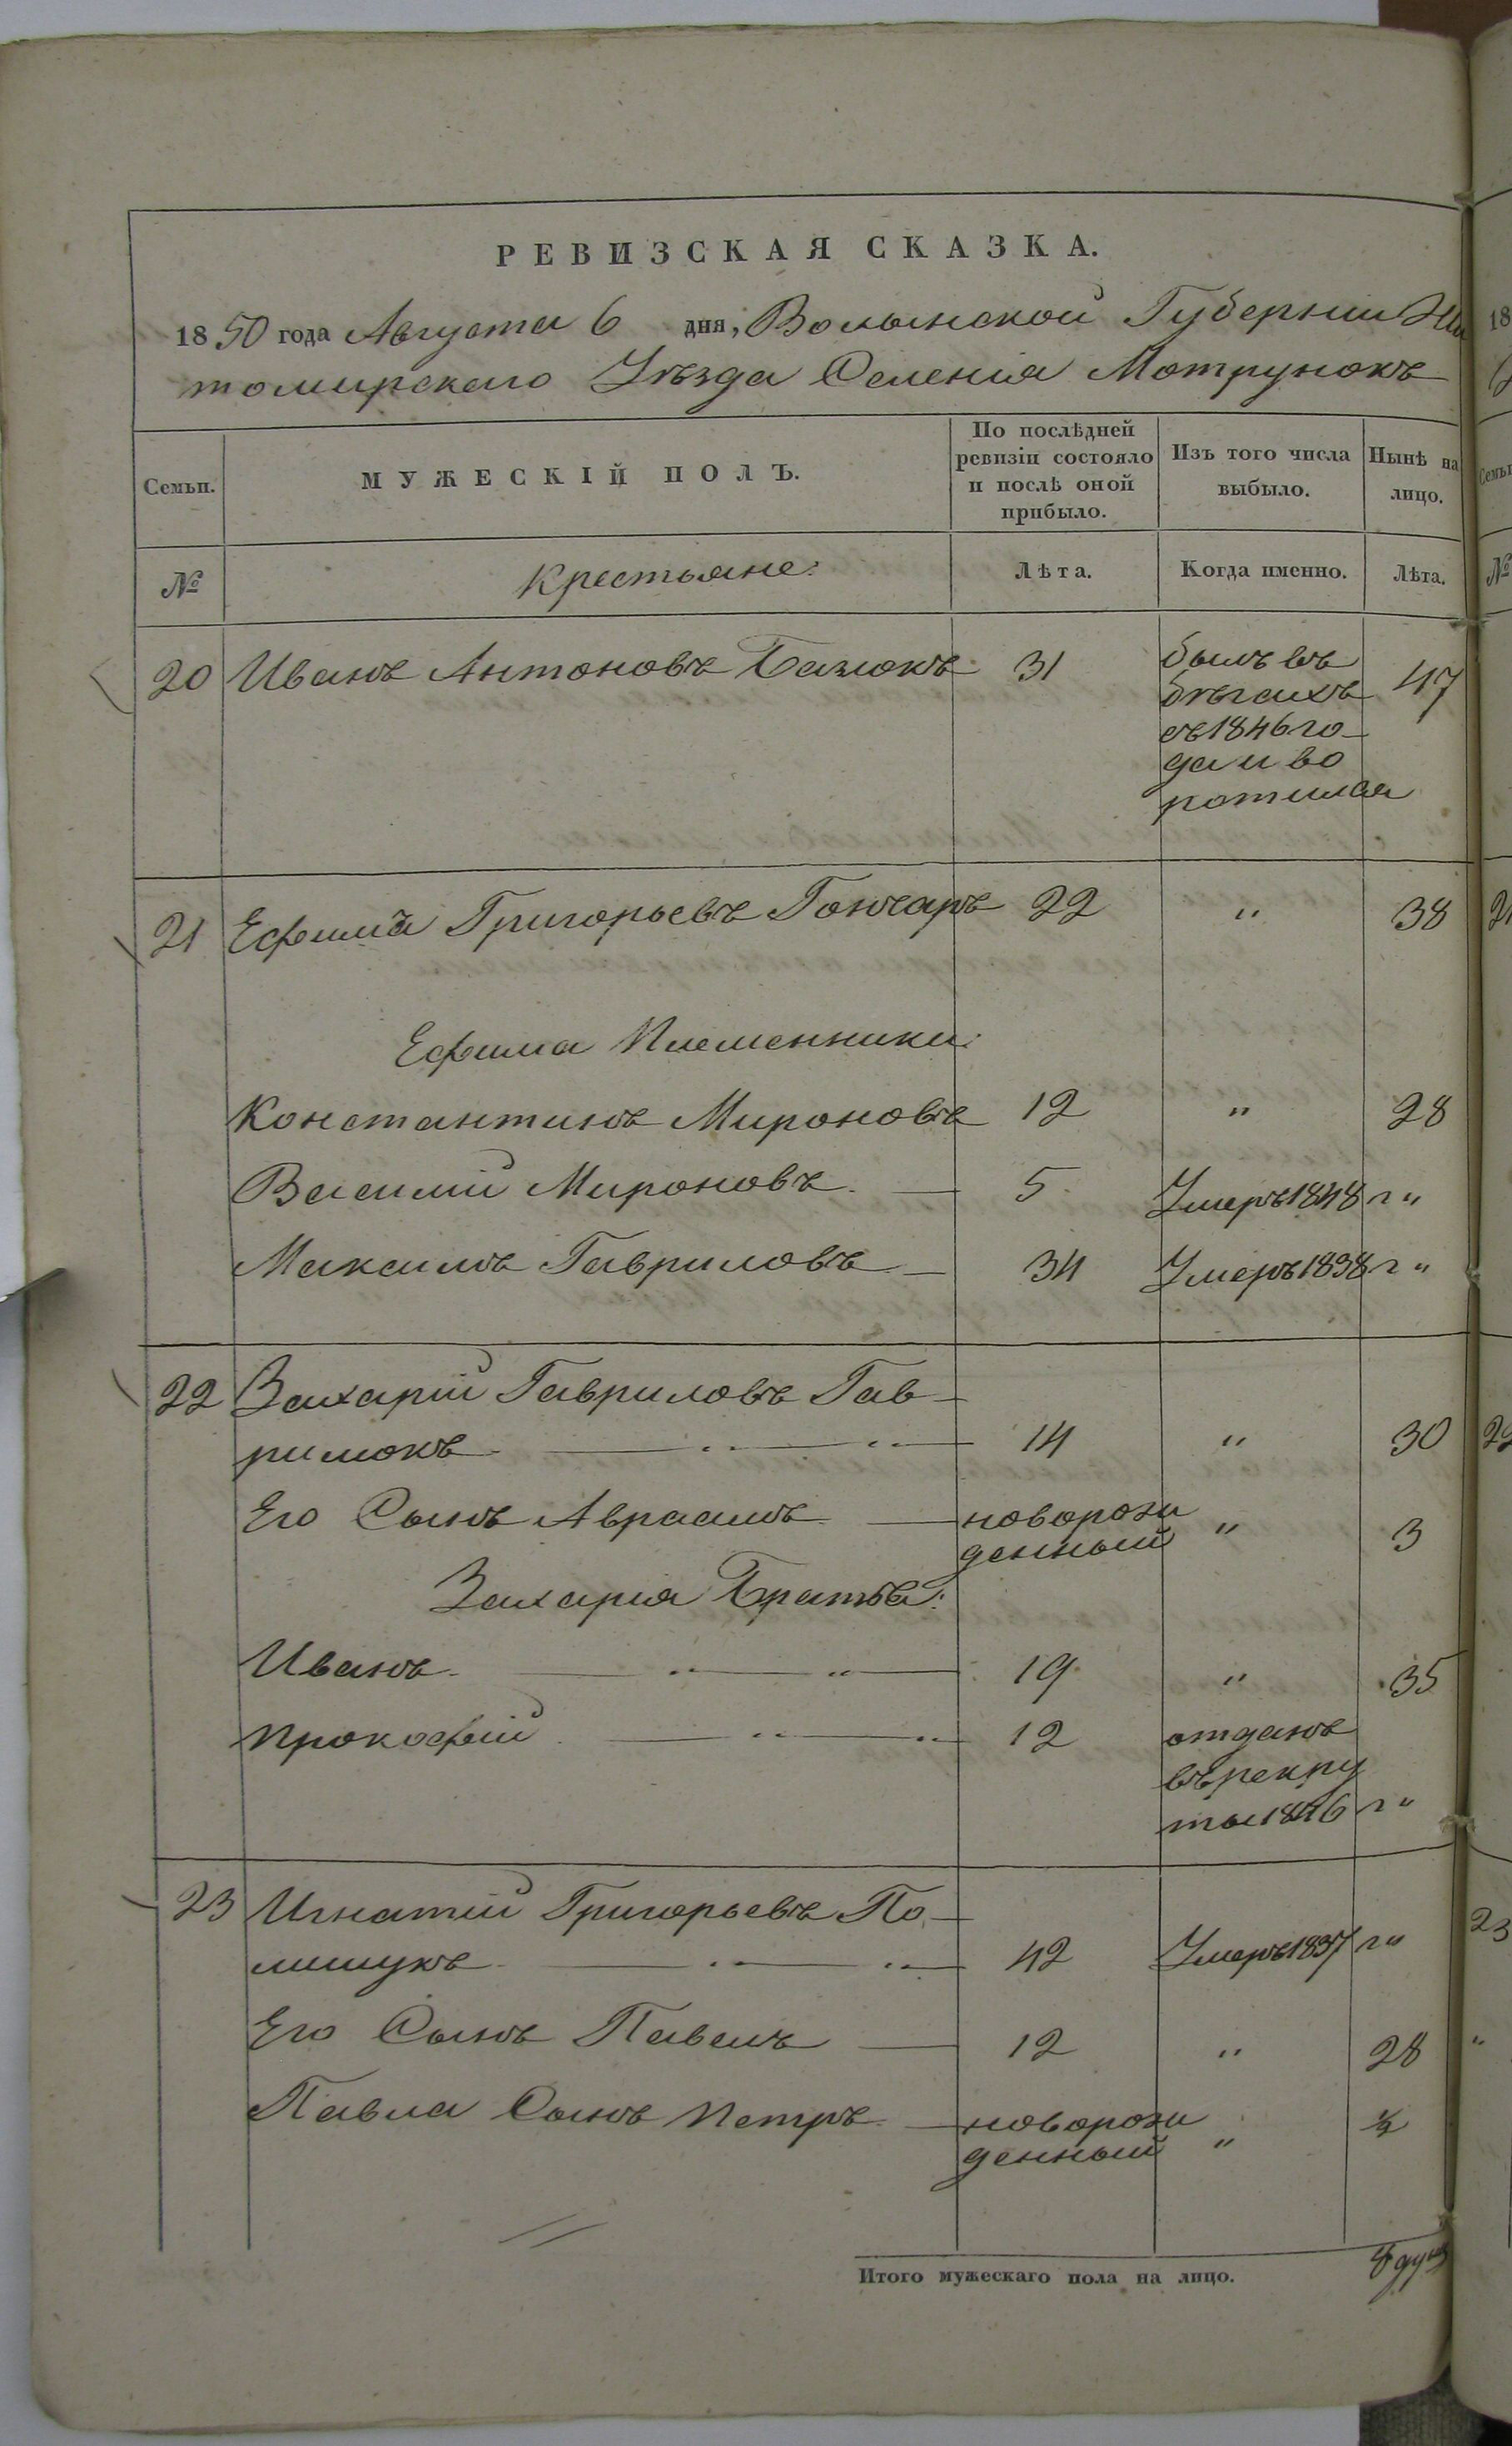 РЕВИЗСКАЯ СКАЗКА.
1850 года Августа 6 дня, Волынской Губернии Жи
томирскаго Уѣзда Селенія Мотрунокъ
Семьи.
МУЖЕСКІЙ ПОЛЪ.
По послѣдней
ревизіи состояло
и послѣ оной
прибыло.
Изъ того числа
выбыло.
Нынѣ на
лицо.
№
Крестьяне:
Лѣта.
Когда именно.
Лѣта.
20 Иванъ Антоновъ 31 былъ въ 47
бѣгахъ
съ 1846 го
да и во
ротился
21 Ефимъ Григорьевъ Гончаръ 22 " 38
Ефима Племенники:
Константинъ Мироновъ 12 " 28
Василий Мироновъ. — 5 Умеръ 1848 г "
Максимъ Гавриловъ — 34 Умеръ 1838 г "
22 Захарій Гавриловъ Гав-
рилюкъ — " — " — 14 " 30
Его Сынъ Авраамъ — новорож " 3
денный
Захарія Братья:
Иванъ — " — " — 19 " 35
Прокофій — " — " 12 отданъ
въ рекру
ты 1846 г "
23 Игнатій Григорьевъ По-
лищукъ — " — " — 42 Умеръ 1837 г "
Его Сынъ Павелъ — 12 " 28
Павла Сынъ Петръ — новорож ½
денный "
Итого мужескаго пола на лицо. 8 душ